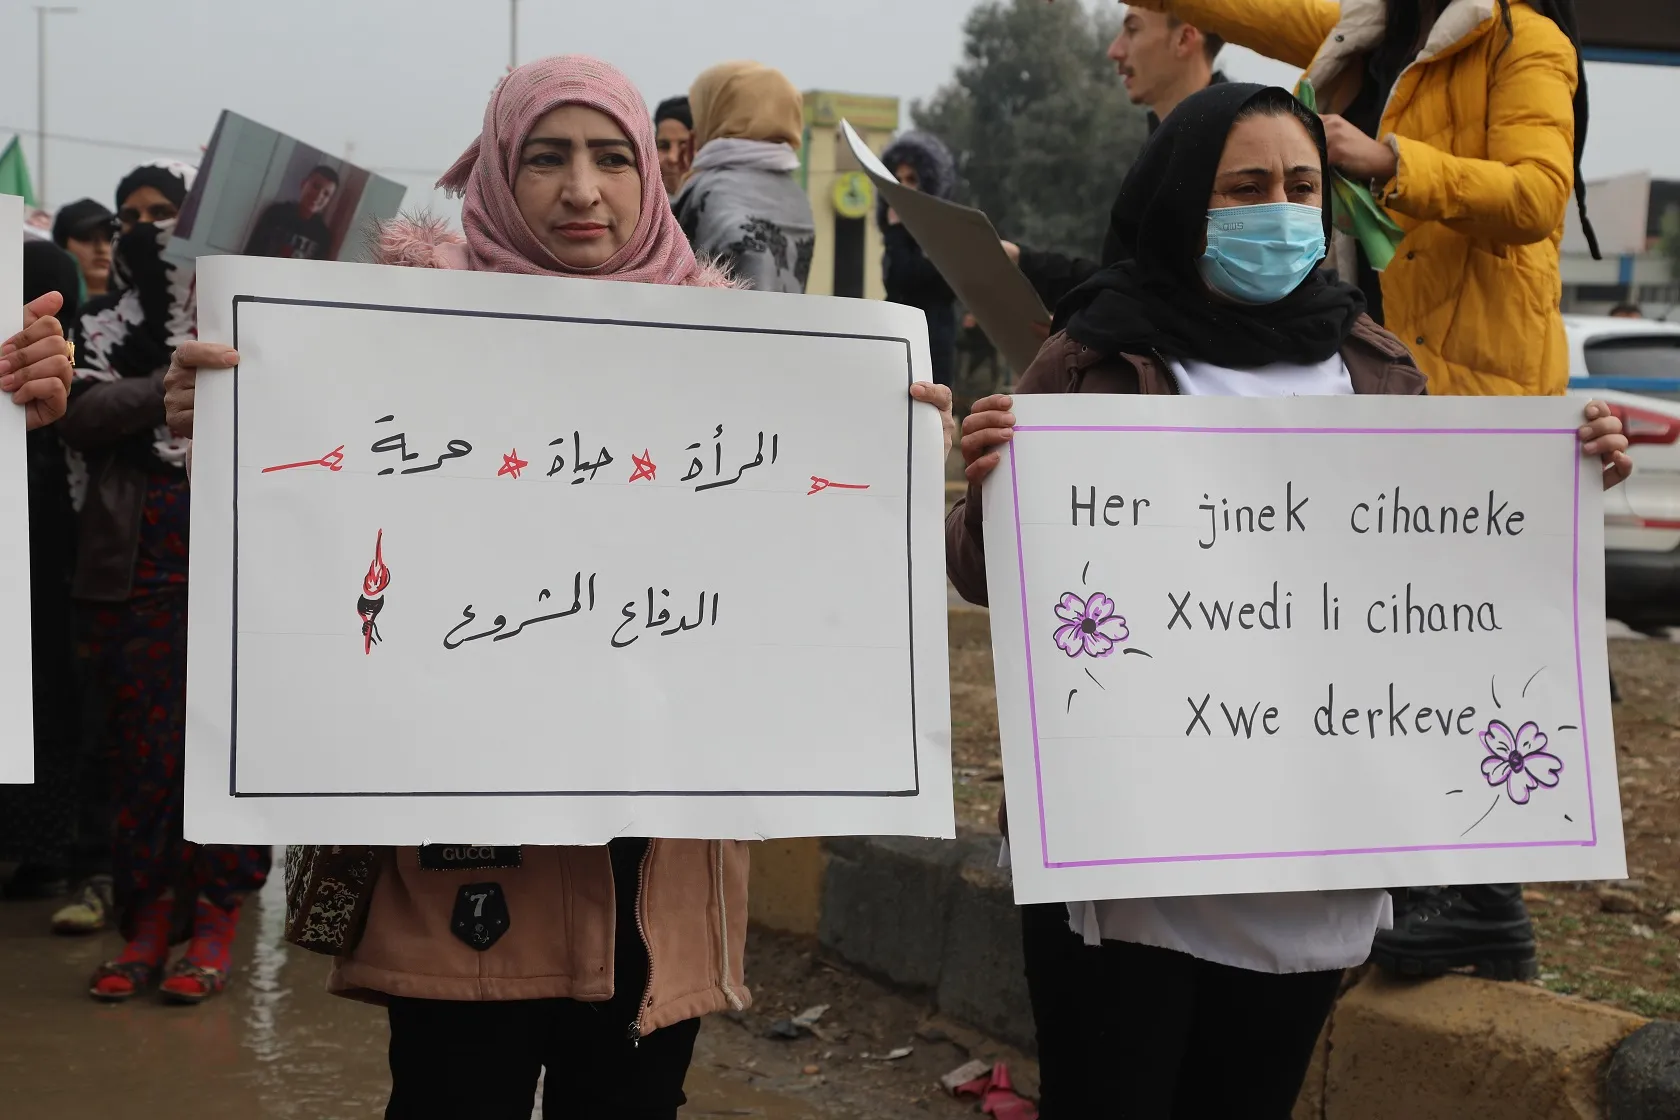 المرأة * حياة * حرية
الدفاع المشروع
Her jinek cîhaneke
Xwedî li cihana
Xwe derkeve
GUCCI
7